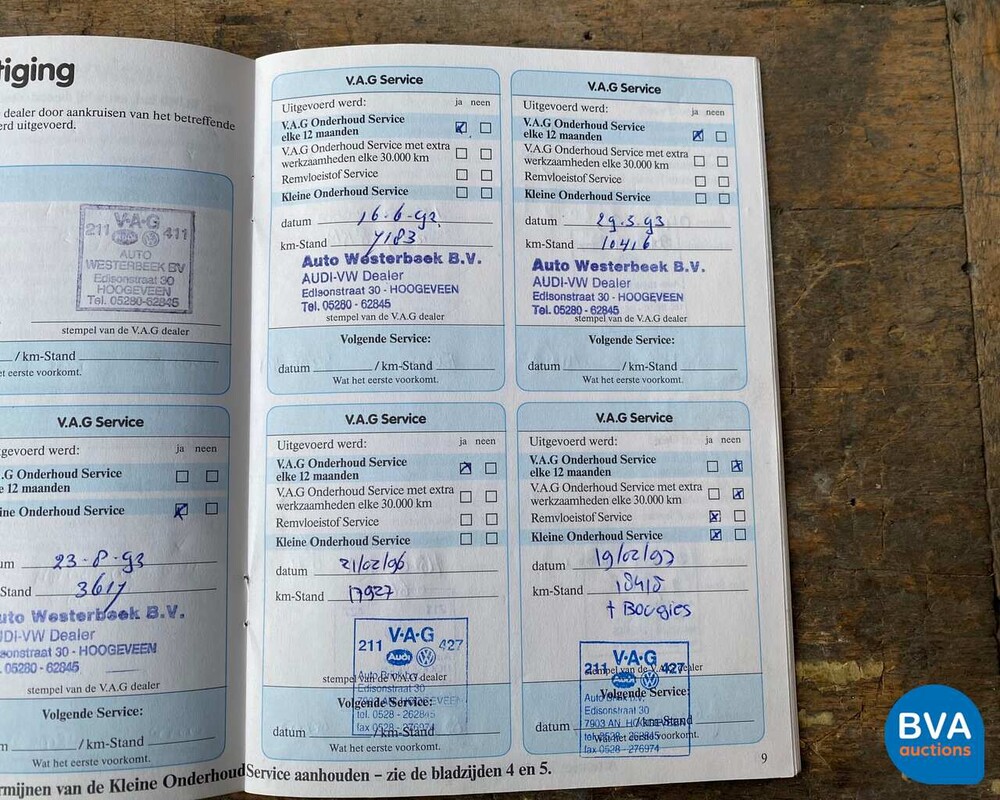 tiging
dealer door aankruisen van het betreffende
erd uitgevoerd.
V·A·G
211 Audi 411
AUTO
WESTERBEEK BV
Edisonstraat 30
HOOGEVEEN
Tel. 05280-62845
stempel van de V.A.G dealer
/ km-Stand
et eerste voorkomt.
V.A.G Service
gevoerd werd: ja neen
.G Onderhoud Service
e 12 maanden
ine Onderhoud Service
um 23-8-93
Stand 3617
uto Westerbeek B.V.
UDI-VW Dealer
isonstraat 30 - HOOGEVEEN
. 05280 - 62845
stempel van de V.A.G dealer
Volgende Service:
m / km-Stand
Wat het eerste voorkomt.
V.A.G Service
Uitgevoerd werd: ja neen
V.A.G Onderhoud Service
elke 12 maanden
V.A.G Onderhoud Service met extra
werkzaamheden elke 30.000 km
Remvloeistof Service
Kleine Onderhoud Service
datum 16-6-92
km-Stand 7183
Auto Westerbeek B.V.
AUDI-VW Dealer
Edisonstraat 30 - HOOGEVEEN
Tel. 05280 - 62845
stempel van de V.A.G dealer
Volgende Service:
datum / km-Stand
Wat het eerste voorkomt.
V.A.G Service
Uitgevoerd werd: ja neen
V.A.G Onderhoud Service
elke 12 maanden
V.A.G Onderhoud Service met extra
werkzaamheden elke 30.000 km
Remvloeistof Service
Kleine Onderhoud Service
datum 29-3-93
km-Stand 10416
Auto Westerbeek B.V.
AUDI-VW Dealer
Edisonstraat 30 - HOOGEVEEN
Tel. 05280 - 62845
stempel van de V.A.G dealer
Volgende Service:
datum / km-Stand
Wat het eerste voorkomt.
V.A.G Service
Uitgevoerd werd: ja neen
V.A.G Onderhoud Service
elke 12 maanden
V.A.G Onderhoud Service met extra
werkzaamheden elke 30.000 km
Remvloeistof Service
Kleine Onderhoud Service
datum 21/02/96
km-Stand 17927
V·A·G
211 Audi 427
stempel van de V.A.G dealer
Edisonstraat 30
Volgende Service:
7903 AN HOOGEVEEN
tel. 0528 - 262845
datum / km-Stand
fax 0528 - 276974
Wat het eerste voorkomt.
V.A.G Service
Uitgevoerd werd: ja neen
V.A.G Onderhoud Service
elke 12 maanden
V.A.G Onderhoud Service met extra
werkzaamheden elke 30.000 km
Remvloeistof Service
Kleine Onderhoud Service
datum 19/02/97
km-Stand 18418
+ Bougies
V·A·G
211 Audi 427
stempel van de V.A.G dealer
Volgende Service:
Edisonstraat 30
7903 AN HOOGEVEEN
datum / km-Stand
tel. 0528 - 262845
Wat het eerste voorkomt.
fax 0528 - 276974
9
rmijnen van de Kleine Onderhoud Service aanhouden – zie de bladzijden 4 en 5.
BVA
auctions